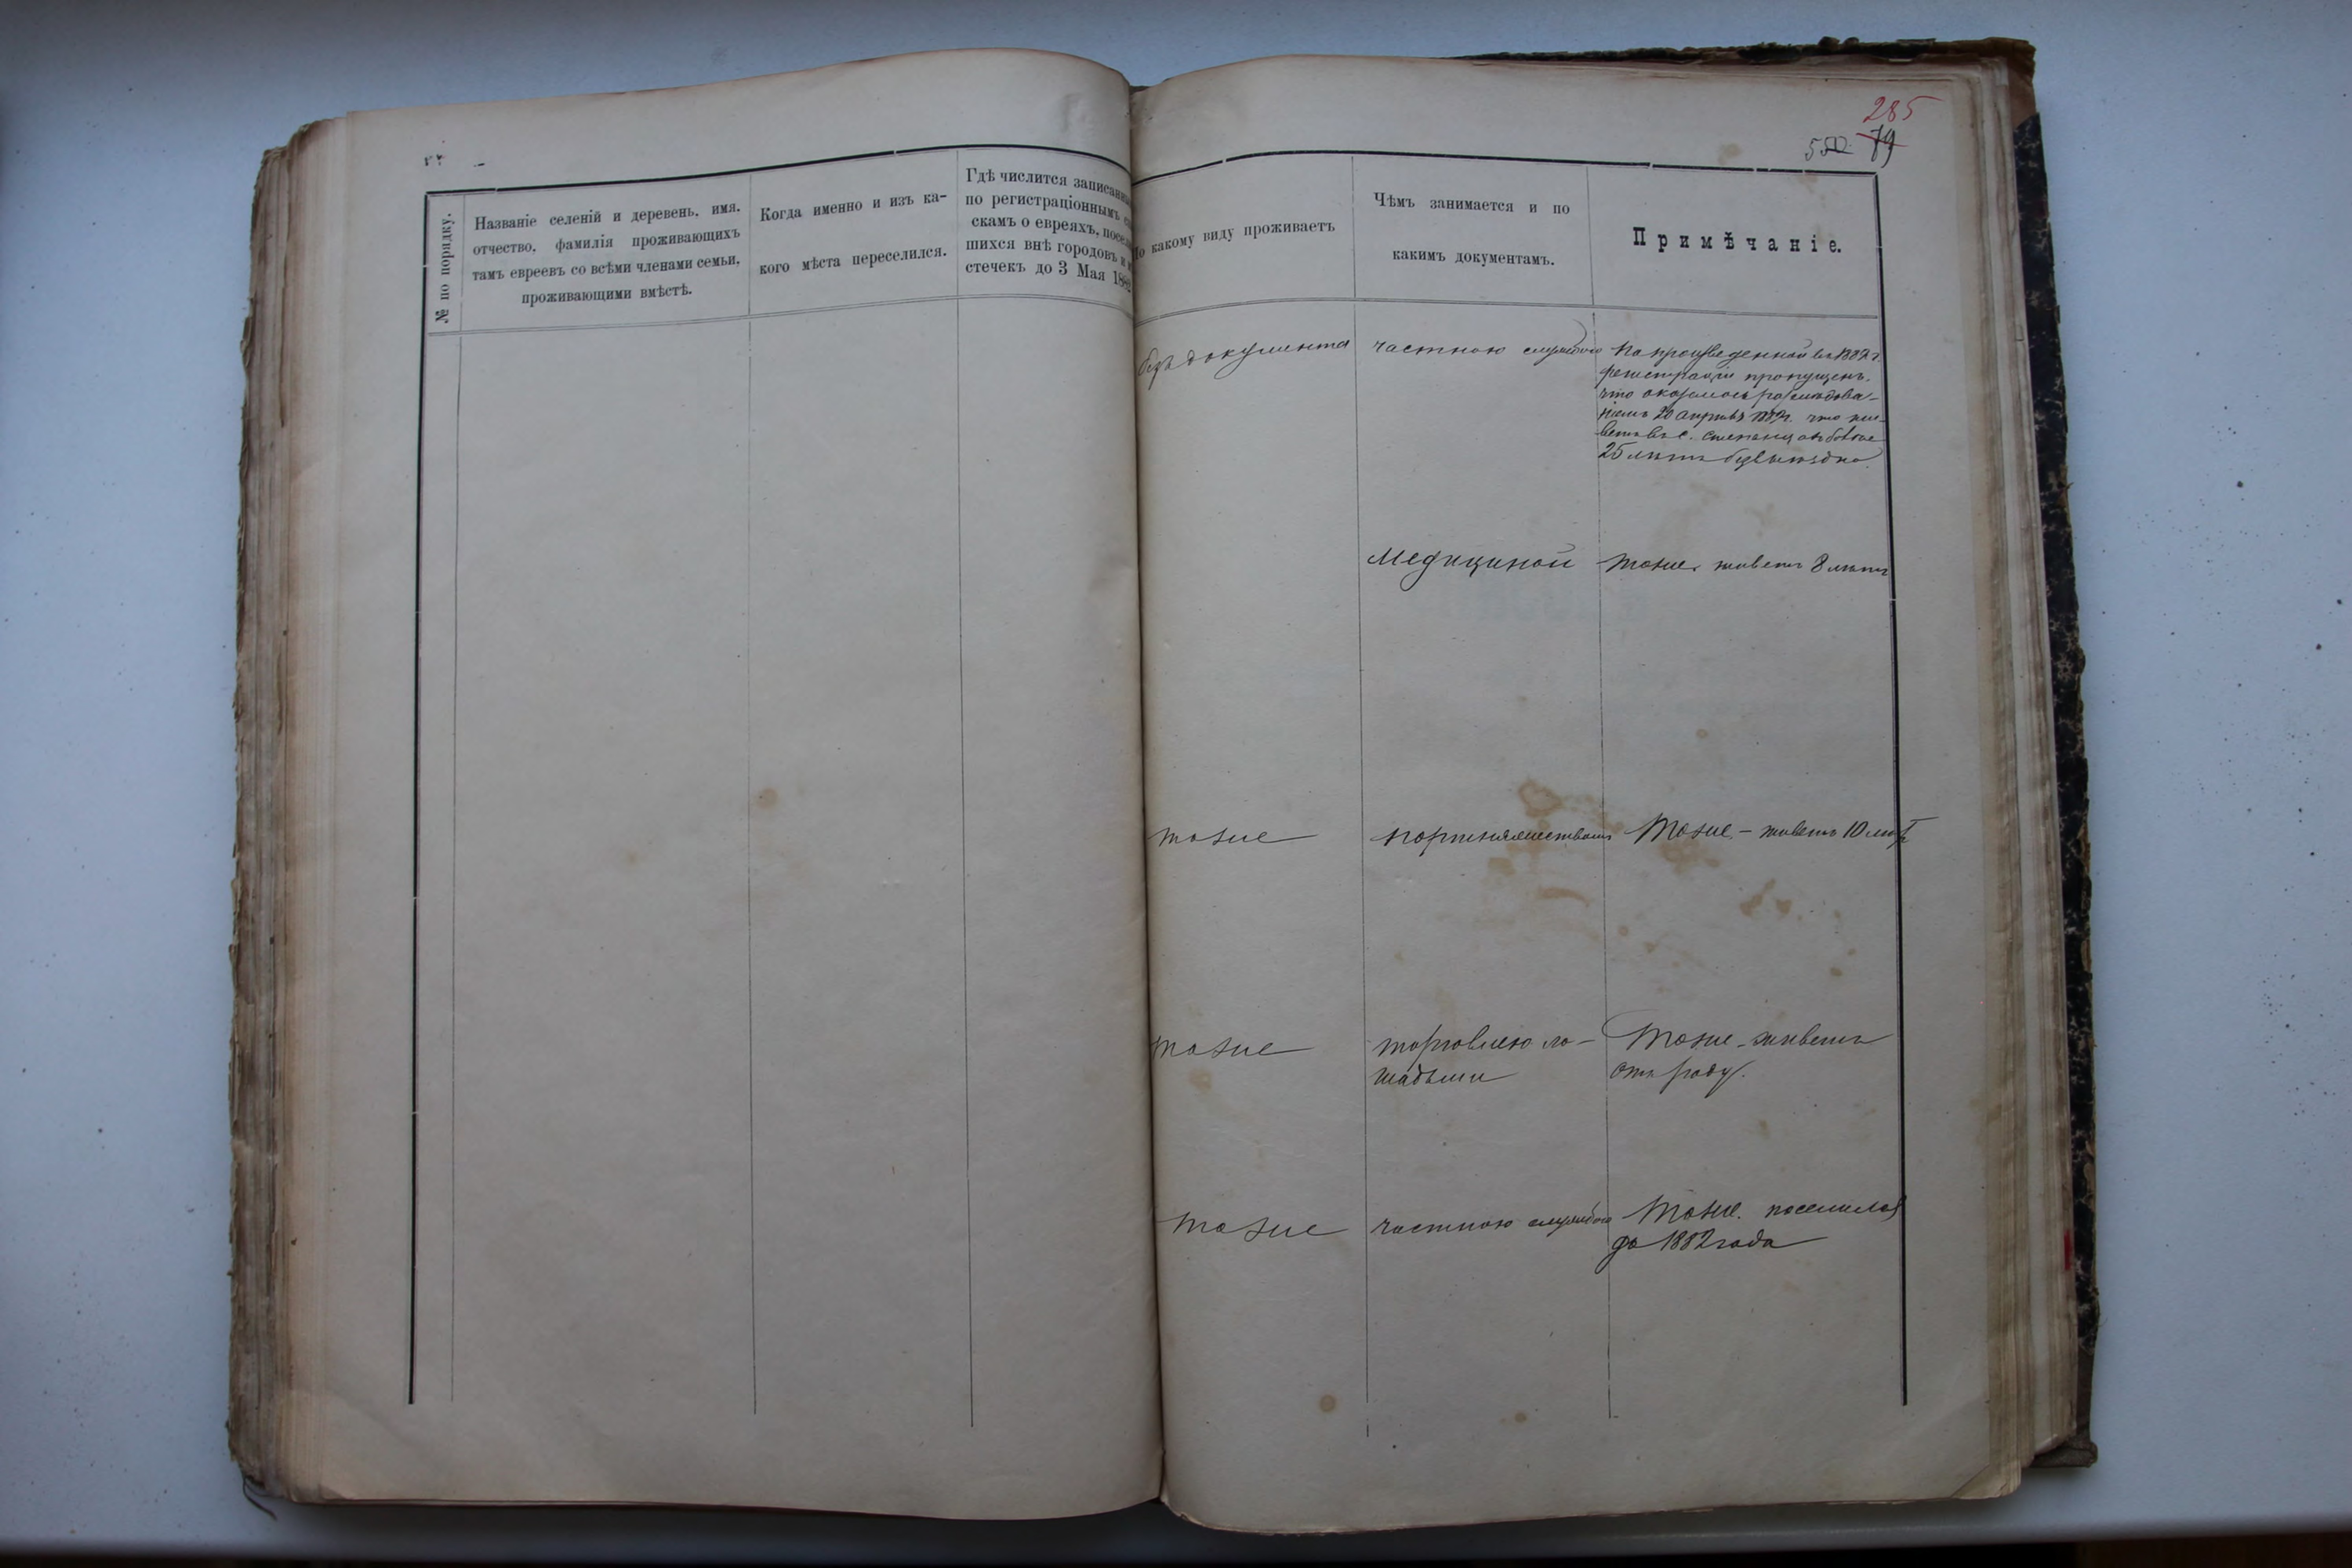 285
550. 79
№ по порядку.
Названіе селеній и деревень, имя,
отчество, фамилія проживающихъ
тамъ евреевъ со всѣми членами семьи,
проживающими вмѣстѣ.
Когда именно и изъ ка-
кого мѣста переселился.
Гдѣ числится записан
по регистраціоннымъ
скамъ о евреяхъ, посел
шихся внѣ городовъ и
стечекъ до 3 Мая 1882
По какому виду проживаетъ
Чѣмъ занимается и по
какимъ документамъ.
Примѣчаніе.
безъ документа
частною службою
По произведенной въ 1882 г.
регистраціи пропущенъ,
что оказалось разслѣдова-
ніемъ 20 апрѣля что жи-
ветъ въ с. болѣе
25 лѣтъ безвыѣздно.
Медициной
Тоже, живетъ 8 лѣтъ
тоже
портняжествомъ
Тоже, – живетъ 10 лѣтъ
тоже
торговлею ло-
шадьми
Тоже – живетъ
отъ роду.
тоже
частною службою
Тоже. поселился
до 1882 года